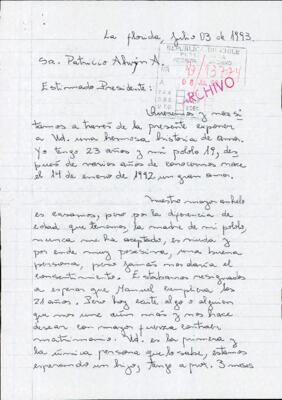 La florida, Julio 03 de 1993.
REPUBLICA DE CHILE
93/13721
ARCHIVO
Sr. Patricio Aylwin A.
Estimado Presidente:
Queremos y necesi
tamos a través de la presente exponer
a Ud. una hermosa historia de amor.
Yo tengo 23 años y mi pololo 19, des
pués de varios años de conocernos nace
el 14 de enero de 1992 un gran amor.
Nuestro mayor anhelo
es casarnos, pero por la diferencia de
edad que tenemos, la madre de mi pololo,
nunca me ha aceptado, es viuda y
por ende muy posesiva, una buena
persona, pero jamás nos daría el
consentimiento. Estabamos resignados
a esperar que Manuel cumpliera los
21 años. Pero hoy existe algo o alguien
que nos une aún más y nos hace
desear con mayor fuerza contraer
matrimonio. Ud. es la primera y
la única persona que lo sabe, estamos
esperando un hijo, tengo apr. 3 meses